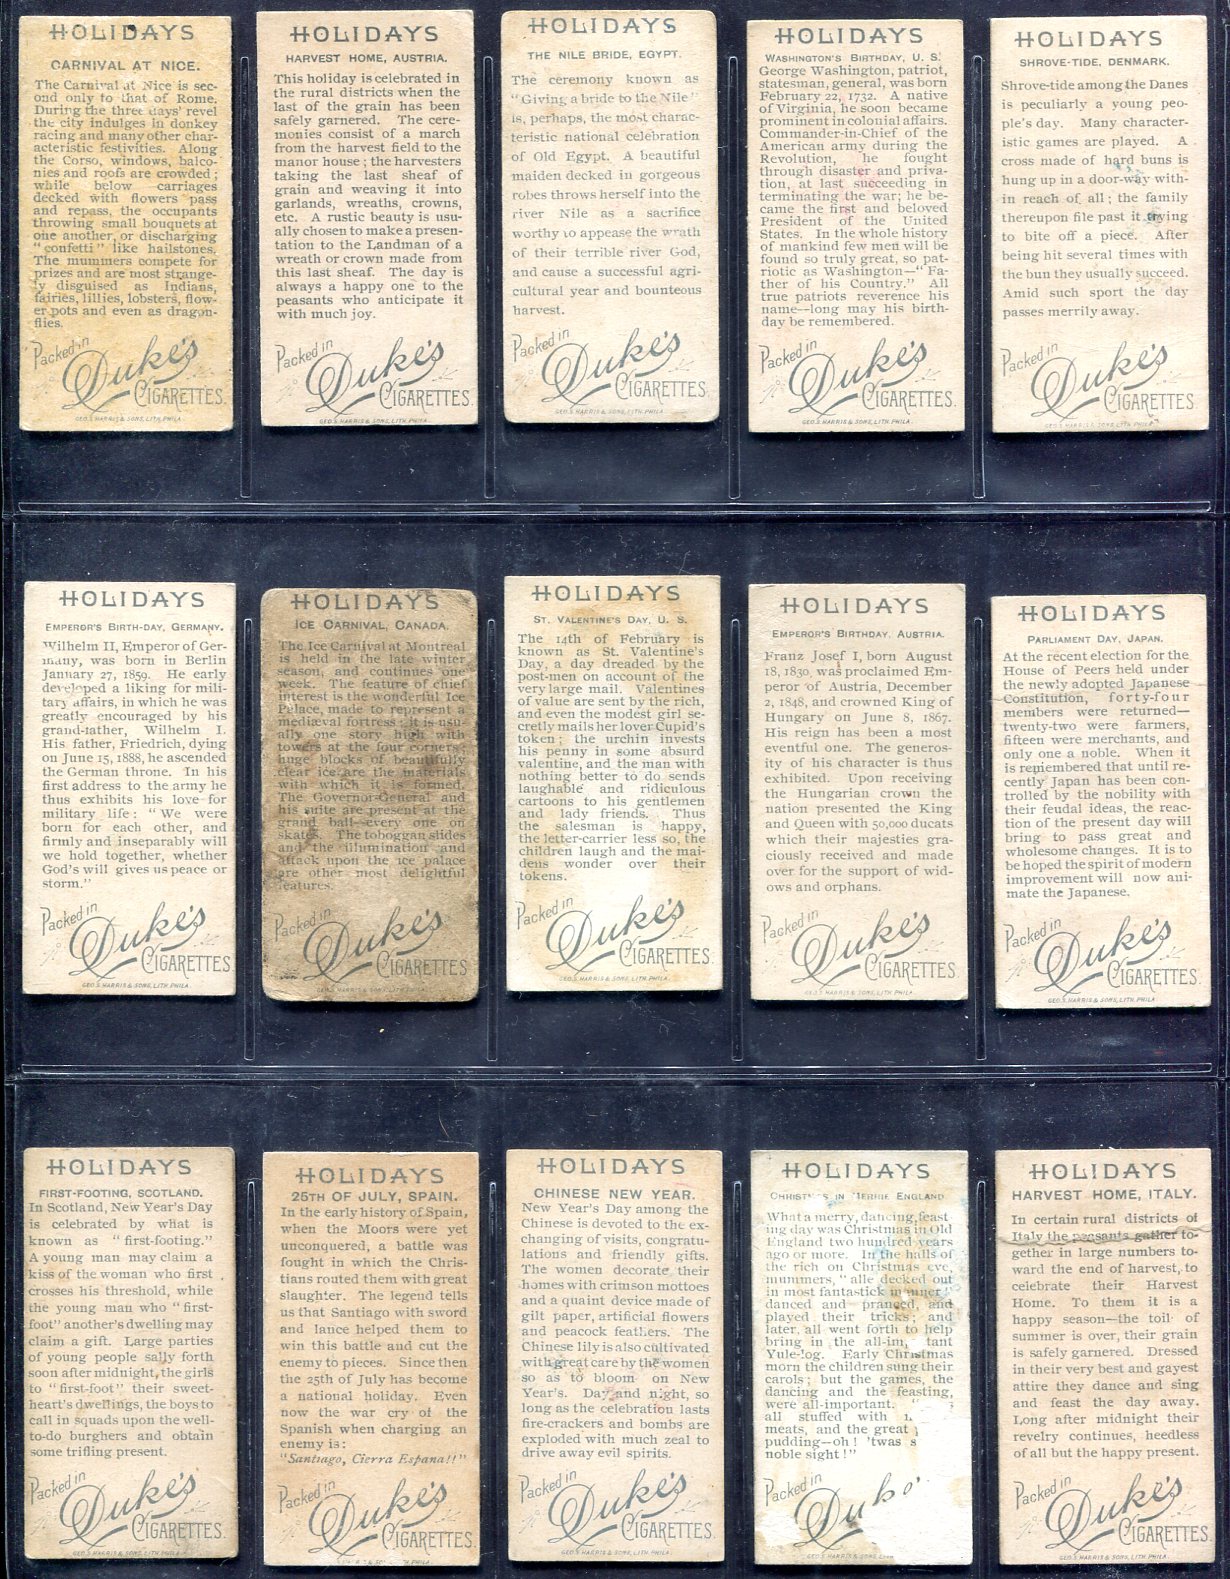 HOLIDAYS
CARNIVAL AT NICE.
The Carnival at Nice is sec-
ond only to that of Rome.
During the three days' revel
the city indulges in donkey
racing and many other char-
acteristic festivities. Along
the Corso, windows, balco-
nies and roofs are crowded;
while below carriages
decked with flowers pass
and repass, the occupants
throwing small bouquets at
one another, or discharging
"confetti" like hailstones.
The mummers compete for
prizes and are most strange-
ly disguised as Indians,
fairies, lillies, lobsters, flow-
er pots and even as dragon-
flies.
Packed in
Duke's
CIGARETTES.
GEO. S. HARRIS & SONS, LITH. PHILA.
HOLIDAYS
HARVEST HOME, AUSTRIA.
This holiday is celebrated in
the rural districts when the
last of the grain has been
safely garnered. The cere-
monies consist of a march
from the harvest field to the
manor house; the harvesters
taking the last sheaf of
grain and weaving it into
garlands, wreaths, crowns,
etc. A rustic beauty is usu-
ally chosen to make a presen-
tation to the Landman of a
wreath or crown made from
this last sheaf. The day is
always a happy one to the
peasants who anticipate it
with much joy.
Packed in
Duke's
CIGARETTES.
GEO. S. HARRIS & SONS, LITH. PHILA.
HOLIDAYS
THE NILE BRIDE, EGYPT.
The ceremony known as
"Giving a bride to the Nile"
is, perhaps, the most charac-
teristic national celebration
of Old Egypt. A beautiful
maiden decked in gorgeous
robes throws herself into the
river Nile as a sacrifice
worthy to appease the wrath
of their terrible river God,
and cause a successful agri-
cultural year and bounteous
harvest.
Packed in
Duke's
CIGARETTES.
GEO. S. HARRIS & SONS, LITH. PHILA.
HOLIDAYS
WASHINGTON'S BIRTHDAY, U. S.
George Washington, patriot,
statesman, general, was born
February 22, 1732. A native
of Virginia, he soon became
prominent in colonial affairs.
Commander-in-Chief of the
American army during the
Revolution, he fought
through disaster and priva-
tion, at last succeeding in
terminating the war; he be-
came the first and beloved
President of the United
States. In the whole history
of mankind few men will be
found so truly great, so pat-
riotic as Washington—"Fa-
ther of his Country." All
true patriots reverence his
name—long may his birth-
day be remembered.
Packed in
Duke's
CIGARETTES.
GEO. S. HARRIS & SONS, LITH. PHILA.
HOLIDAYS
SHROVE-TIDE, DENMARK.
Shrove-tide among the Danes
is peculiarly a young peo-
ple's day. Many character-
istic games are played. A
cross made of hard buns is
hung up in a door-way with-
in reach of all; the family
thereupon file past it trying
to bite off a piece. After
being hit several times with
the bun they usually succeed.
Amid such sport the day
passes merrily away.
Packed in
Duke's
CIGARETTES.
GEO. S. HARRIS & SONS, LITH. PHILA.
HOLIDAYS
EMPEROR'S BIRTH-DAY, GERMANY.
Wilhelm II, Emperor of Ger-
many, was born in Berlin
January 27, 1859. He early
developed a liking for mili-
tary affairs, in which he was
greatly encouraged by his
grand-father, Wilhelm I.
His father, Friedrich, dying
on June 15, 1888, he ascended
the German throne. In his
first address to the army he
thus exhibits his love for
military life: "We were
born for each other, and
firmly and inseparably will
we hold together, whether
God's will gives us peace or
storm."
Packed in
Duke's
CIGARETTES
GEO. S. HARRIS & SONS, LITH. PHILA.
HOLIDAYS
ICE CARNIVAL, CANADA.
The Ice Carnival at Montreal
is held in the late winter
season, and continues one
week. The feature of chief
interest is the wonderful Ice
Palace, made to represent a
mediæval fortress; it is usu-
ally one story high with
towers at the four corners;
huge blocks of beautifully
clear ice are the materials
with which it is formed.
The Governor-General and
his suite are present at the
grand ball—every one on
skates. The toboggan slides
and the illumination and
attack upon the ice palace
are other most delightful
features.
Packed in
Duke's
CIGARETTES
GEO. S. HARRIS & SONS, LITH. PHILA.
HOLIDAYS
ST. VALENTINE'S DAY, U. S.
The 14th of February is
known as St. Valentine's
Day, a day dreaded by the
post-men on account of the
very large mail. Valentines
of value are sent by the rich,
and even the modest girl se-
cretly mails her lover Cupid's
token; the urchin invests
his penny in some absurd
valentine, and the man with
nothing better to do sends
laughable and ridiculous
cartoons to his gentlemen
and lady friends. Thus
the salesman is happy,
the letter-carrier less so, the
children laugh and the mai-
dens wonder over their
tokens.
Packed in
Duke's
CIGARETTES
GEO. S. HARRIS & SONS, LITH. PHILA.
HOLIDAYS
EMPEROR'S BIRTHDAY, AUSTRIA.
Franz Josef I, born August
18, 1830, was proclaimed Em-
peror of Austria, December
2, 1848, and crowned King of
Hungary on June 8, 1867.
His reign has been a most
eventful one. The generos-
ity of his character is thus
exhibited. Upon receiving
the Hungarian crown the
nation presented the King
and Queen with 50,000 ducats
which their majesties gra-
ciously received and made
over for the support of wid-
ows and orphans.
Packed in
Duke's
CIGARETTES
GEO. S. HARRIS & SONS, LITH. PHILA.
HOLIDAYS
PARLIAMENT DAY, JAPAN.
At the recent election for the
House of Peers held under
the newly adopted Japanese
Constitution, forty-four
members were returned—
twenty-two were farmers,
fifteen were merchants, and
only one a noble. When it
is remembered that until re-
cently Japan has been con-
trolled by the nobility with
their feudal ideas, the reac-
tion of the present day will
bring to pass great and
wholesome changes. It is to
be hoped the spirit of modern
improvement will now ani-
mate the Japanese.
Packed in
Duke's
CIGARETTES.
GEO. S. HARRIS & SONS, LITH. PHILA.
HOLIDAYS
FIRST-FOOTING, SCOTLAND.
In Scotland, New Year's Day
is celebrated by what is
known as "first-footing."
A young man may claim a
kiss of the woman who first
crosses his threshold, while
the young man who "first-
foot" another's dwelling may
claim a gift. Large parties
of young people sally forth
soon after midnight, the girls
to "first-foot" their sweet-
heart's dwellings, the boys to
call in squads upon the well-
to-do burghers and obtain
some trifling present.
Packed in
Duke's
CIGARETTES.
GEO. S. HARRIS & SONS, LITH. PHILA.
HOLIDAYS
25TH OF JULY, SPAIN.
In the early history of Spain,
when the Moors were yet
unconquered, a battle was
fought in which the Chris-
tians routed them with great
slaughter. The legend tells
us that Santiago with sword
and lance helped them to
win this battle and cut the
enemy to pieces. Since then
the 25th of July has become
a national holiday. Even
now the war cry of the
Spanish when charging an
enemy is:
"Santiago, Cierra Espana!!"
Packed in
Duke's
CIGARETTES.
& SO LITH. PHILA.
HOLIDAYS
CHINESE NEW YEAR.
New Year's Day among the
Chinese is devoted to the ex-
changing of visits, congratu-
lations and friendly gifts.
The women decorate their
homes with crimson mottoes
and a quaint device made of
gilt paper, artificial flowers
and peacock feathers. The
Chinese lily is also cultivated
with great care by the women
so as to bloom on New
Year's. Day and night, so
long as the celebration lasts
fire-crackers and bombs are
exploded with much zeal to
drive away evil spirits.
Packed in
Duke's
CIGARETTES.
GEO. S. HARRIS & SONS, LITH. PHILA.
HOLIDAYS
CHRISTMAS IN MERRIE ENGLAND
What a merry, dancing, feast-
ing day was Christmas in Old
England two hundred years
ago or more. In the halls of
the rich on Christmas eve,
mummers, "alle decked out
in most fantastick manner"
danced and pranced, and
played their tricks; and
later, all went forth to help
bring in the all-im tant
Yule-log. Early Christmas
morn the children sung their
carols; but the games, the
dancing and the feasting,
were all-important.
all stuffed with
meats, and the great
pudding—oh! 'twas
noble sight!"
Packed in
Duke
GEO. S. HARRIS & SONS,
HOLIDAYS
HARVEST HOME, ITALY.
In certain rural districts of
Italy the peasants gather to-
gether in large numbers to-
ward the end of harvest, to
celebrate their Harvest
Home. To them it is a
happy season—the toil of
summer is over, their grain
is safely garnered. Dressed
in their very best and gayest
attire they dance and sing
and feast the day away.
Long after midnight their
revelry continues, heedless
of all but the happy present.
Packed in
Duke's
CIGARETTES.
GEO. S. HARRIS & SONS, LITH. PHILA.